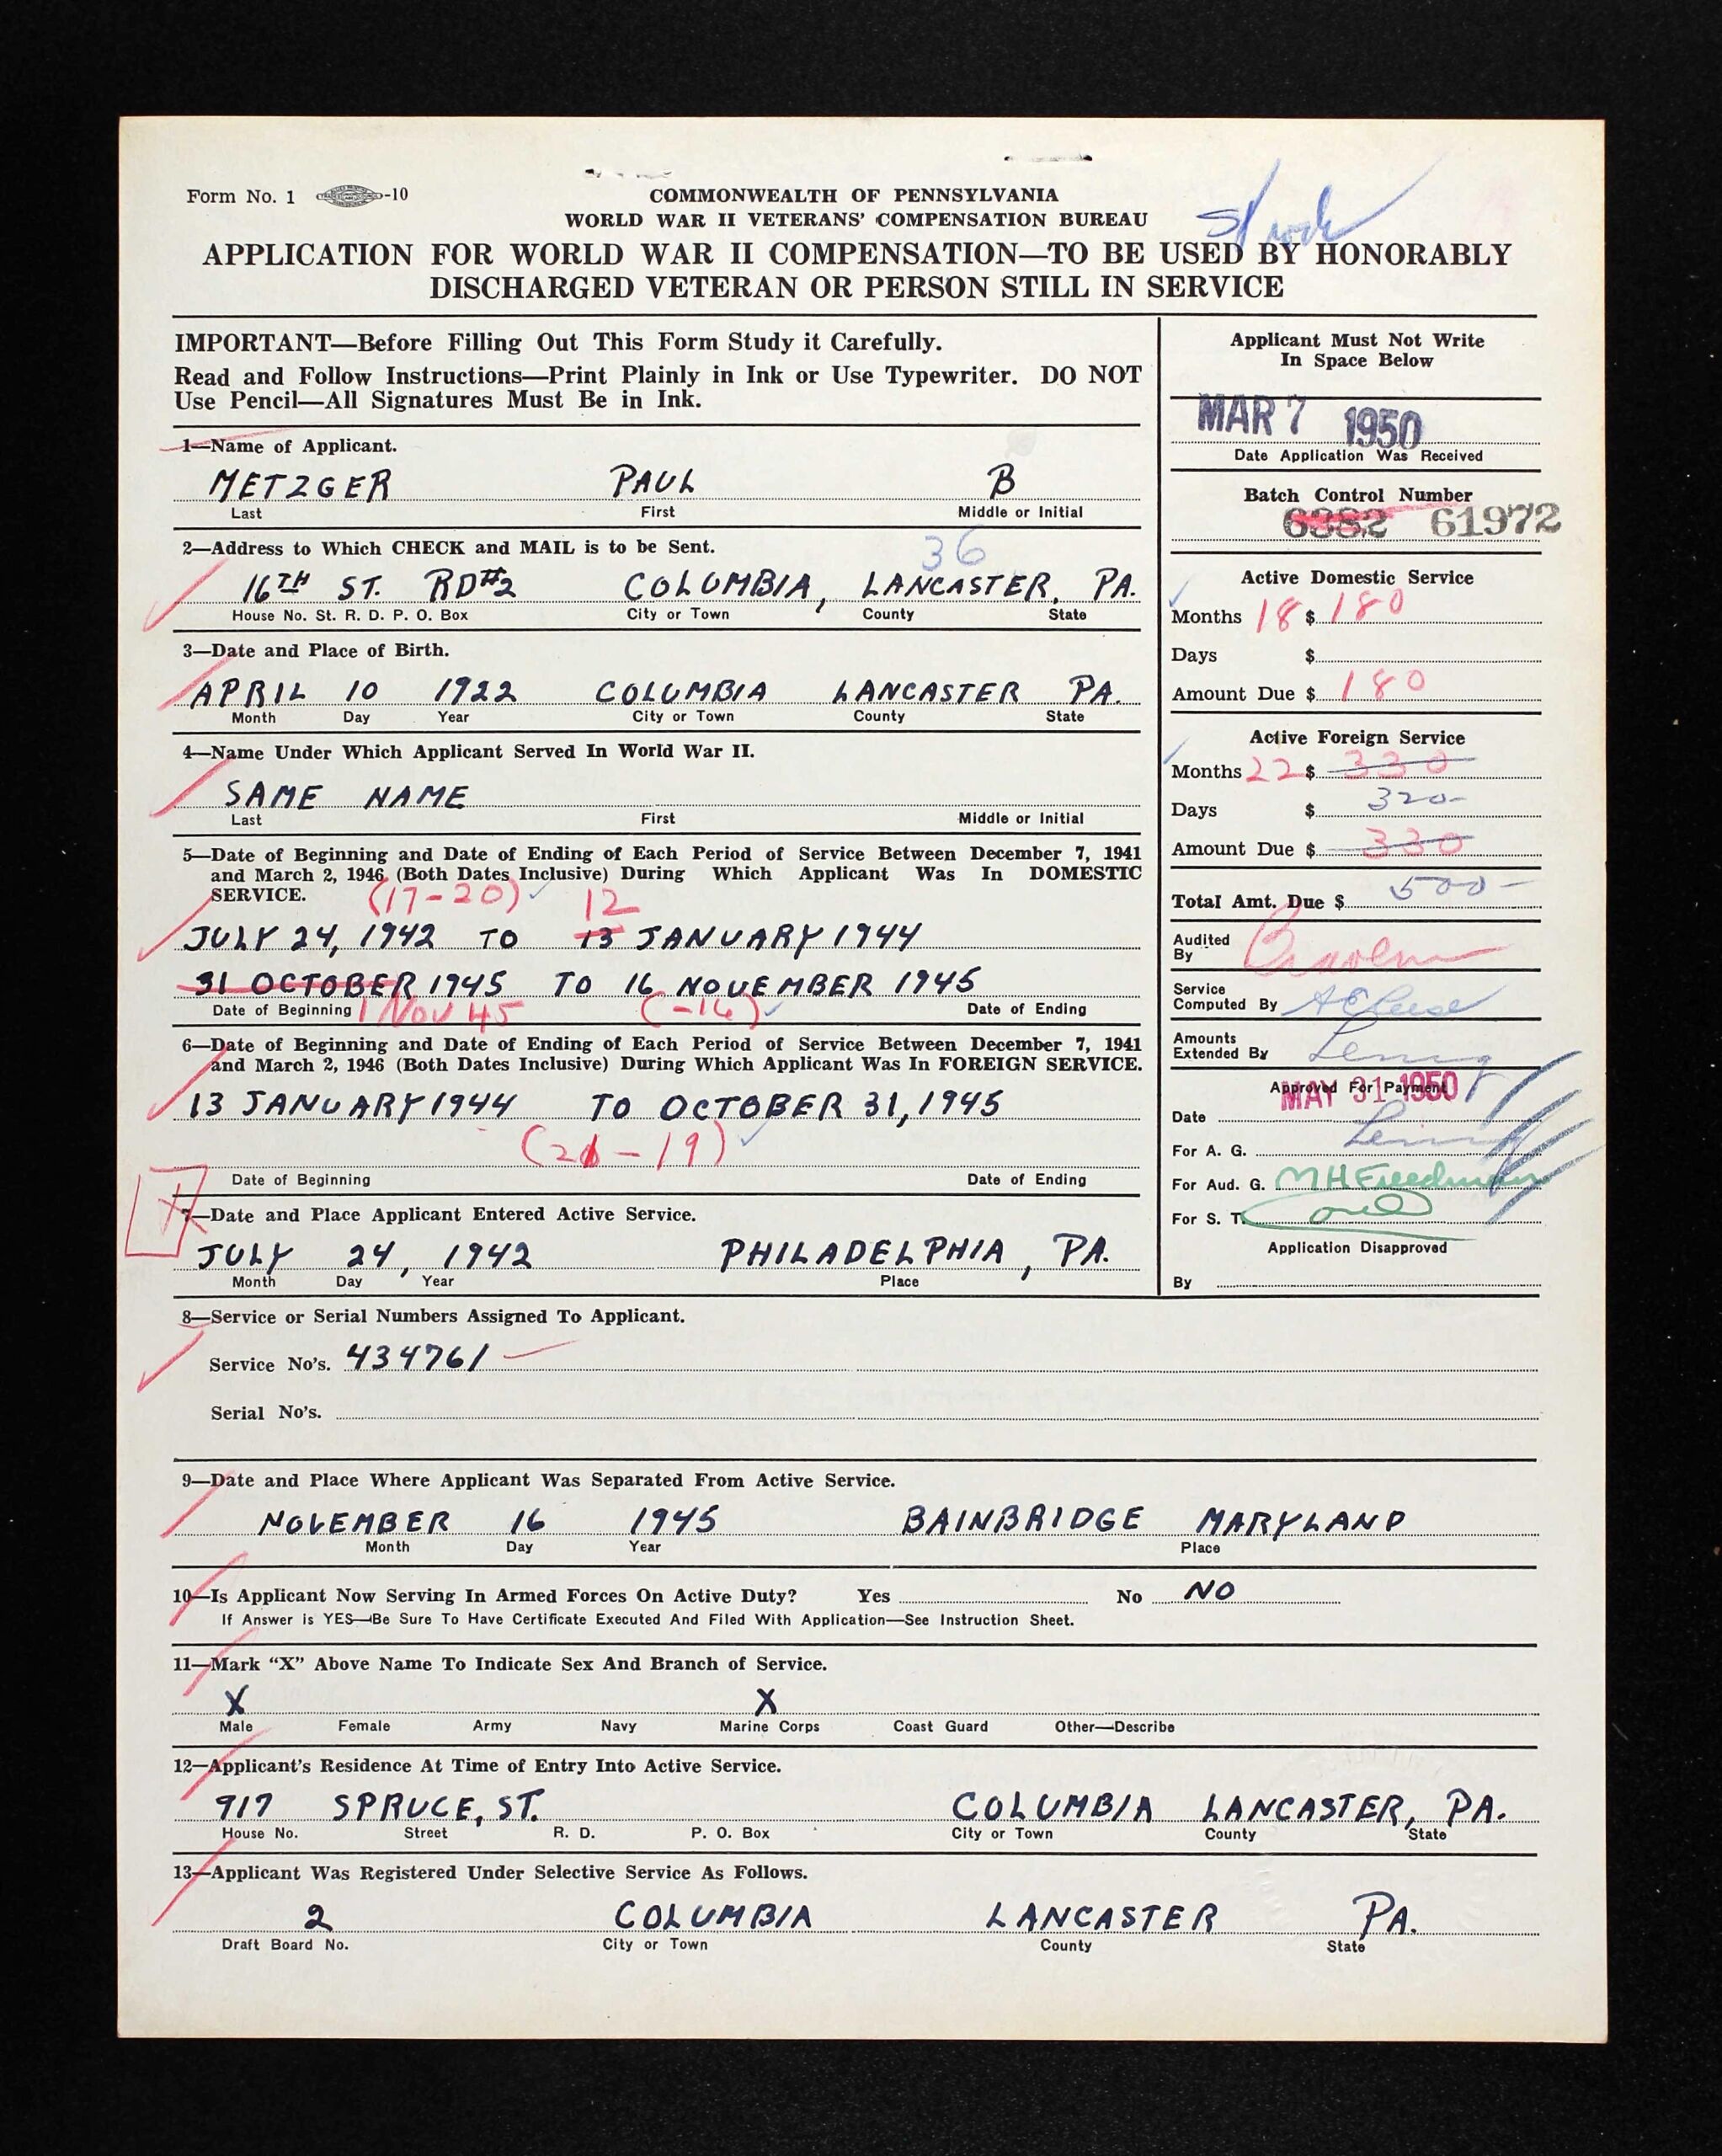 Form No. 1 -10
COMMONWEALTH OF PENNSYLVANIA
WORLD WAR II VETERANS' COMPENSATION BUREAU
APPLICATION FOR WORLD WAR II COMPENSATION—TO BE USED BY HONORABLY
DISCHARGED VETERAN OR PERSON STILL IN SERVICE
IMPORTANT—Before Filling Out This Form Study it Carefully.
Read and Follow Instructions—Print Plainly in Ink or Use Typewriter. DO NOT
Use Pencil—All Signatures Must Be in Ink.
1—Name of Applicant.
METZGER PAUL B
Last First Middle or Initial
2—Address to Which CHECK and MAIL is to be Sent.
36
16TH ST. RD#2 COLUMBIA, LANCASTER, PA.
House No. St. R. D. P. O. Box City or Town County State
3—Date and Place of Birth.
APRIL 10 1922 COLUMBIA LANCASTER PA.
Month Day Year City or Town County State
4—Name Under Which Applicant Served In World War II.
SAME NAME
Last First Middle or Initial
5—Date of Beginning and Date of Ending of Each Period of Service Between December 7, 1941
and March 2, 1946 (Both Dates Inclusive) During Which Applicant Was In DOMESTIC
SERVICE.
(17-20) 12
JULY 24, 1942 TO 13 JANUARY 1944
31 OCTOBER 1945 TO 16 NOVEMBER 1945
Date of Beginning 1 Nov 45 (-16) Date of Ending
6—Date of Beginning and Date of Ending of Each Period of Service Between December 7, 1941
and March 2, 1946 (Both Dates Inclusive) During Which Applicant Was In FOREIGN SERVICE.
13 JANUARY 1944 TO OCTOBER 31, 1945
(21-19)
Date of Beginning Date of Ending
7—Date and Place Applicant Entered Active Service.
JULY 24, 1942 PHILADELPHIA, PA.
Month Day Year Place
Applicant Must Not Write
In Space Below
MAR 7 1950
Date Application Was Received
Batch Control Number
6382 61972
Active Domestic Service
Months 18 $ 180
Days $
Amount Due $ 180
Active Foreign Service
Months 22 $ 330
Days $ 320-
Amount Due $ 330
Total Amt. Due $ 500-
Audited
By
Service
Computed By
Amounts
Extended By
Approved For Payment
MAY 31 1950
Date
For A. G.
For Aud. G. MH Freedman
For S. T.
Application Disapproved
By
8—Service or Serial Numbers Assigned To Applicant.
Service No's. 434761
Serial No's.
9—Date and Place Where Applicant Was Separated From Active Service.
NOVEMBER 16 1945 BAINBRIDGE MARYLAND
Month Day Year Place
10—Is Applicant Now Serving In Armed Forces On Active Duty? Yes No NO
If Answer is YES—Be Sure To Have Certificate Executed And Filed With Application—See Instruction Sheet.
11—Mark "X" Above Name To Indicate Sex And Branch of Service.
X X
Male Female Army Navy Marine Corps Coast Guard Other—Describe
12—Applicant's Residence At Time of Entry Into Active Service.
917 SPRUCE, ST. COLUMBIA LANCASTER, PA.
House No. Street R. D. P. O. Box City or Town County State
13—Applicant Was Registered Under Selective Service As Follows.
2 COLUMBIA LANCASTER PA.
Draft Board No. City or Town County State